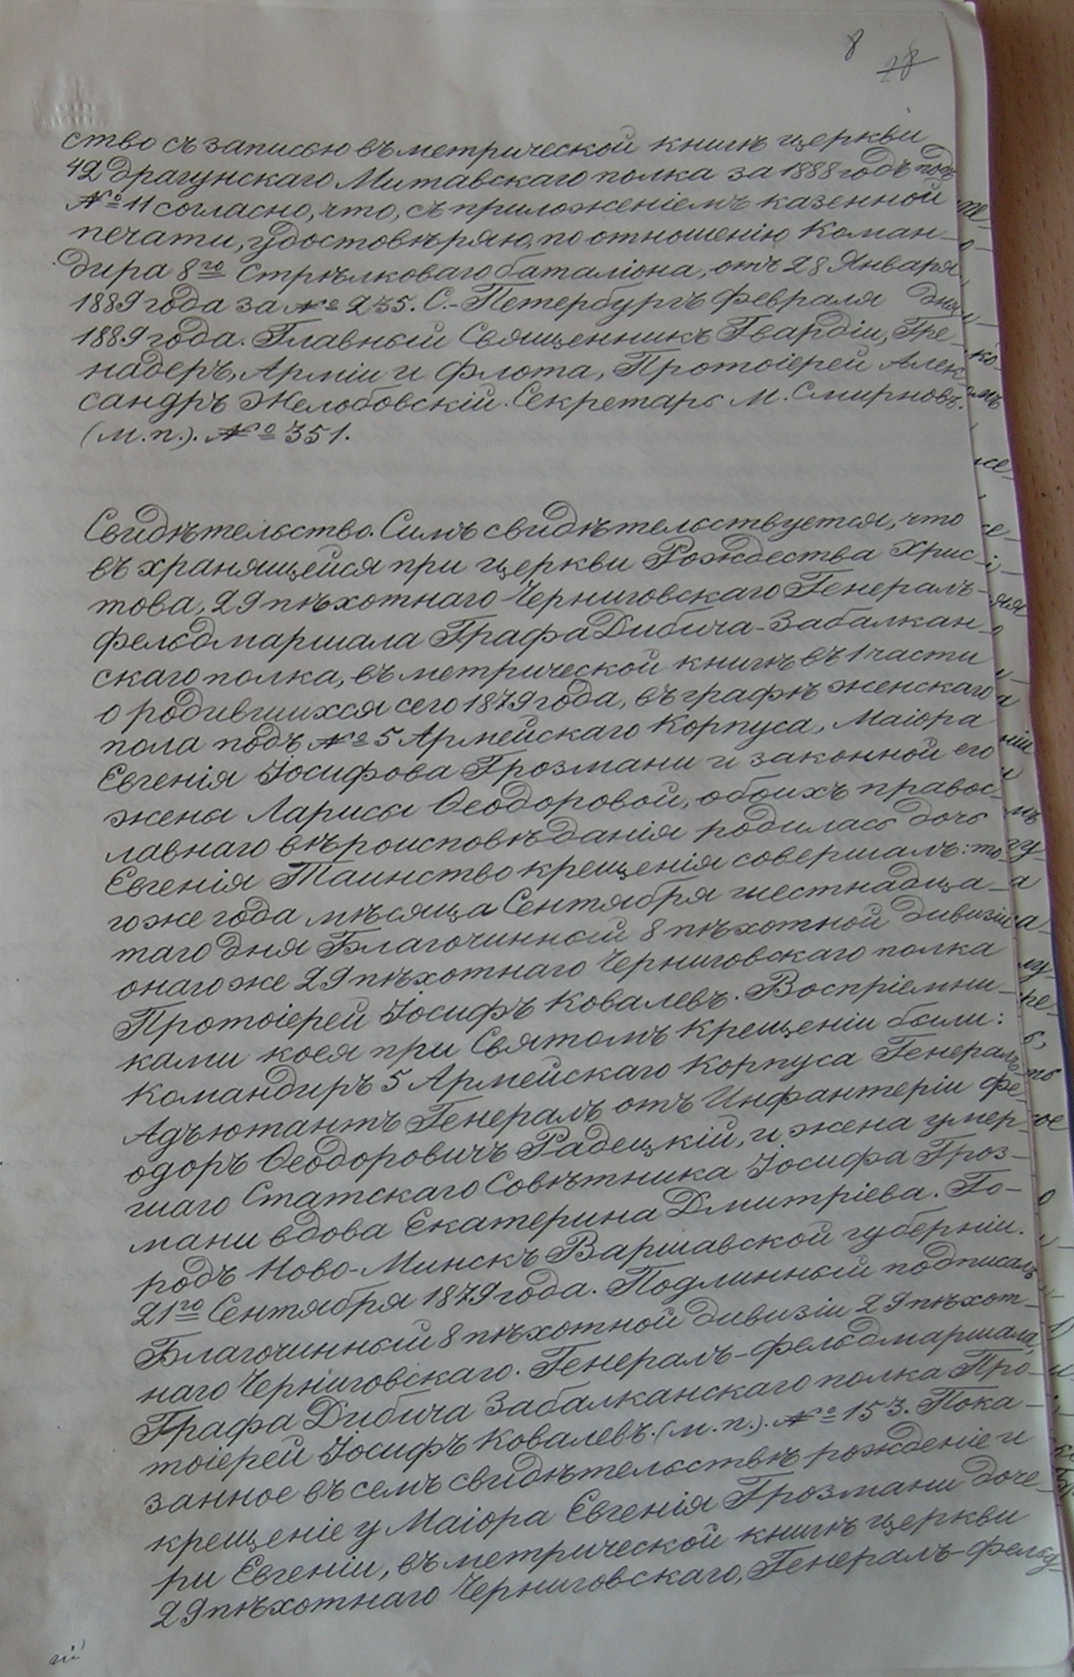 8
28
ство съ записью въ метрической книгѣ церкви
42 драгунскаго Митавскаго полка за 1888 годъ подъ
№ 11 согласно, что, съ приложеніемъ казенной
печати, удостовѣряю, по отношенію Коман-
дира 8го Стрѣлковаго баталіона, отъ 28 Января
1889 года за № 235. С.-Петербургъ Февраля дня
1889 года. Главный Священникъ Гвардіи, Гре-
надеръ, Арміи и Флота, Протоіерей Алек-
сандръ Желобовскій. Секретарь М. Смирновъ.
(м.п.). № 351.
Свидѣтельство. Симъ свидѣтельствуется, что
въ хранящейся при церкви Рождества Хрис-
това, 29 пѣхотнаго Черниговскаго Генералъ-
фельдмаршала Графа Дибича-Забалкан-
скаго полка, въ метрической книгѣ въ 1 части
о родившихся сего 1879 года, въ графѣ женскаго
пола подъ № 5 Армейскаго Корпуса, Маіора
Евгенія Іосифова Грозмани и законной его
жены Ларисы Ѳеодоровой, обоихъ правос-
лавнаго вѣроисповѣданія родилась дочь
Евгенія Таинство крещенія совершалъ: то-
гоже года мѣсяца Сентября шестнадца-
таго дня Благочинный 8 пѣхотной дивизіи
онагоже 29 пѣхотнаго Черниговскаго полка
Протоіерей Іосифъ Ковалевъ. Воспріемни-
ками коея при Святомъ Крещеніи были:
Командиръ 5 Армейскаго Корпуса Генералъ
Адъютантъ Генералъ отъ Инфантеріи Фе-
одоръ Ѳеодоровичъ Радецкій, и жена умер-
шаго Статскаго Совѣтника Іосифа Гроз-
мани вдова Екатерина Дмитріева. Го-
родъ Ново-Минскъ Варшавской губерніи.
21го Сентября 1879 года. Подлинный подписалъ
Благочинный 8 пѣхотной дивизіи 29 пѣхот-
наго Черниговскаго. Генералъ-фельдмаршала
Графа Дибича Забалканскаго полка Про-
тоіерей Іосифъ Ковалевъ. (м.п.). № 153. Пока-
занное въ семъ свидѣтельствѣ рожденіе и
крещеніе у Маіора Евгенія Грозмани доче-
ри Евгеніи, въ метрической книгѣ церкви
29 пѣхотнаго Черниговскаго, Генералъ-Фельд-